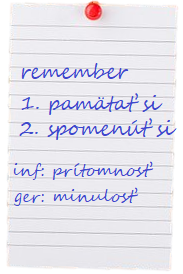 remember
1. pamätať si
2. spomenúť si
inf: prítomnosť
ger: minulosť